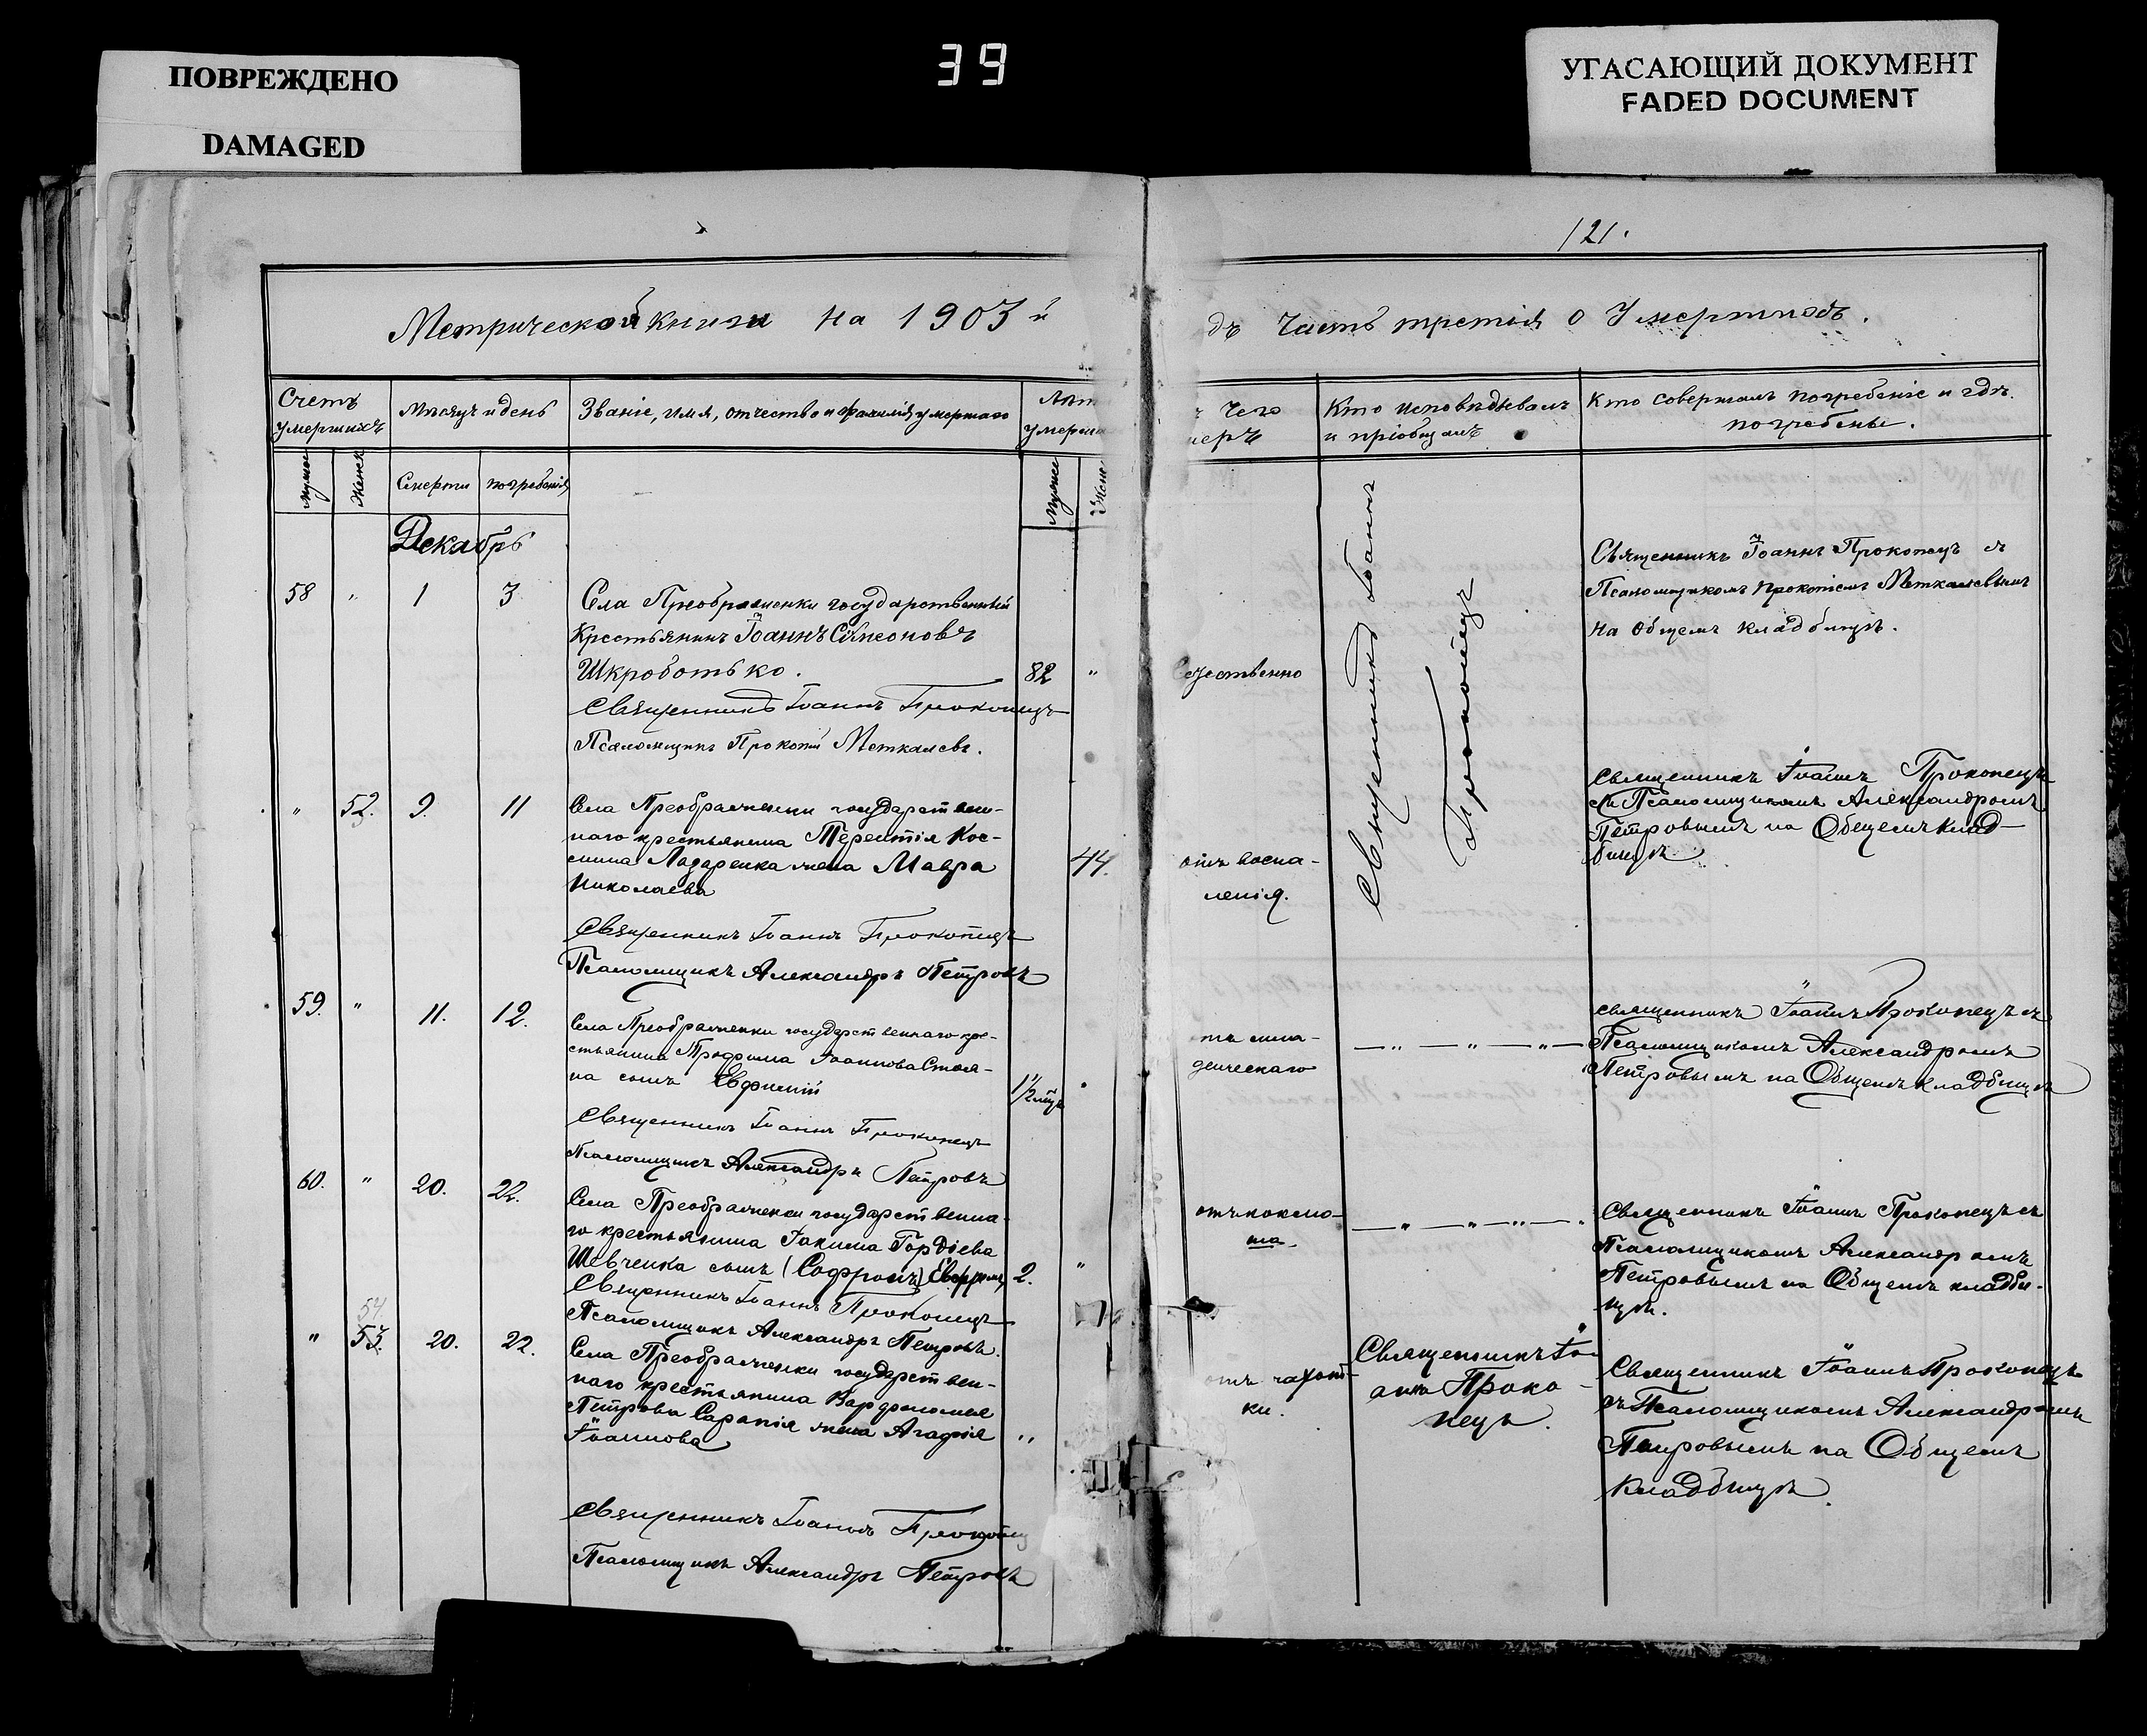 39
ПОВРЕЖДЕНО
DAMAGED
УГАСАЮЩИЙ ДОКУМЕНТ
FADED DOCUMENT
121.
Метрической книги на 1903 й
дъ Часть третья о Умершихъ.
Счетъ умершихъ
Мѣсяцъ и день
Званіе, имя, отчество и фамилія умершаго
Лѣт
умерша
Чего
меръ
Кто исповѣдывалъ
и пріобщалъ
Кто совершалъ погребеніе и гдѣ
погребены.
Мужес
Женск
Смерти
погребенія
Мужес
Женс
Декабрь
58 " 1 3
Села Преображенки государственный
Крестьянинъ Іоаннъ Симеоновъ
Шкроботько.
82 "
Священникъ Іоаннъ Прокопецъ
Псаломщикъ Прокопій Меткалевъ.
Естественно
Священникъ Іоаннъ
Прокопецъ
Священникъ Іоаннъ Прокопецъ съ
Псаломщикомъ Прокопіемъ Меткалевымъ
на общемъ кладбищѣ.
" 52. 9. 11
Села Преображенки государствен-
наго крестьянина Терентія Кос-
мина Лазаренка жена Мавра
Николаева
44.
Священникъ Іоаннъ Прокопецъ
Псаломщикъ Александръ Петровъ
отъ воспа-
ленія.
Священникъ Іоаннъ Прокопецъ
съ Псаломщикомъ Александромъ
Петровымъ на Общемъ клад-
бищѣ
59. " 11. 12.
Села Преображенки государственнаго кре-
стьянина Трофима Іоаннова
на сынъ Евфимій
1½ мѣц
Священникъ Іоаннъ Прокопецъ
Псаломщикъ Александръ Петровъ
тъ мла-
денческаго
— " — " — " —
Священникъ Іоаннъ Прокопецъ съ
Псаломщикомъ Александромъ
Петровымъ на Общемъ кладбищѣ
60. " 20. 22.
Села Преображенки государственна-
го крестьянина Іакима Гордіева
Шевченка сынъ (Софронъ)
2. "
Священникъ Іоаннъ Прокопецъ
Псаломщикъ Александръ Петровъ.
— " — " — " — "
Священникъ Іоаннъ Прокопецъ съ
Псаломщикомъ Александромъ
Петровымъ на Общемъ кладби-
щѣ.
54
" 53. 20. 22.
Села Преображенки государствен-
наго крестьянина Варфоломея
Петрова Сарапія жена Агафія
Іоаннова
"
Священникъ Іоаннъ Прокопец
Псаломщикъ Александръ Петровъ
отъ чахот-
ки.
Священникъ Іо-
аннъ Проко-
пецъ.
Священникъ Іоаннъ Прокопецъ
съ Псаломщикомъ Александромъ
Петровымъ на Общемъ
кладбищѣ.